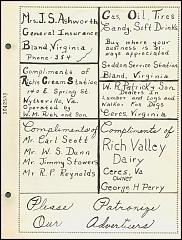 Mrs. J. S. Ashworth
General Insurance
Bland, Virginia
Phone - 354
Gas, Oil, Tires
Candy, Soft Drinks
Buy where your
business is al-
ways appreciated
Seddon Service Station
Bland, Virginia
Compliments of
Richs Gream Station
140 E Spring St.
Wytheville, Va
Operated by
W. M. Rich and Son
W. R. Patrick & Son
Dealers In
Lumber and Logs and
Walker Fox Dogs
Ceres Virginia
Compliments of
Mr. Carl Scott
Mr. W. S. Dunn
Mr. Jimmy Stowers
Mr. R. P. Reynolds
Compliments of
Rich Valley
Dairy
Ceres, Va
Owner
George H Perry
Please Patronize
Our Advertisers